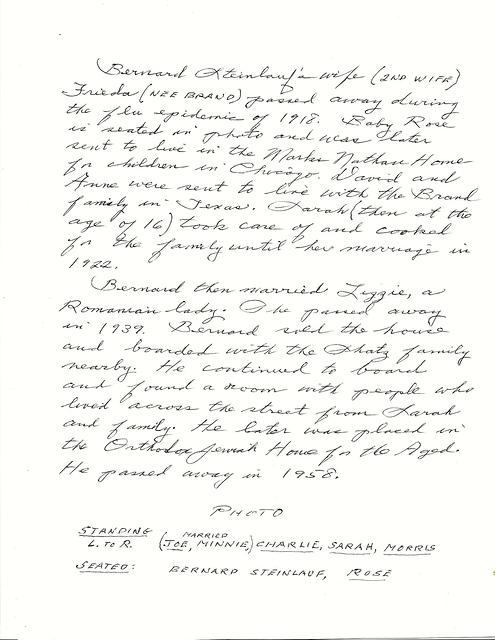 Bernard Steinlauf's wife (2ND WIFE)
Frieda (NEE BRAND) passed away during
the flu epidemic of 1918. Baby Rose
is seated in photo and was later
sent to live in the Marks Nathan Home
for children in Chicago. David and
Anne were sent to live with the Brand
family in Texas. Sarah (then at the
age of 16) took care of and cooked
for the family until her marriage in
1922.
Bernard then married Lizzie, a
Romanian lady. She passed away
in 1939. Bernard sold the house
and boarded with the Shatz family
nearby. He continued to board
and found a room with people who
lived across the street from Sarah
and family. He later was placed in
the Orthodox Jewish Home for the Aged.
He passed away in 1958.
PHOTO
STANDING
MARRIED
L. TO R. (JOE, MINNIE,) CHARLIE, SARAH, MORRIS
SEATED: BERNARD STEINLAUF, ROSE